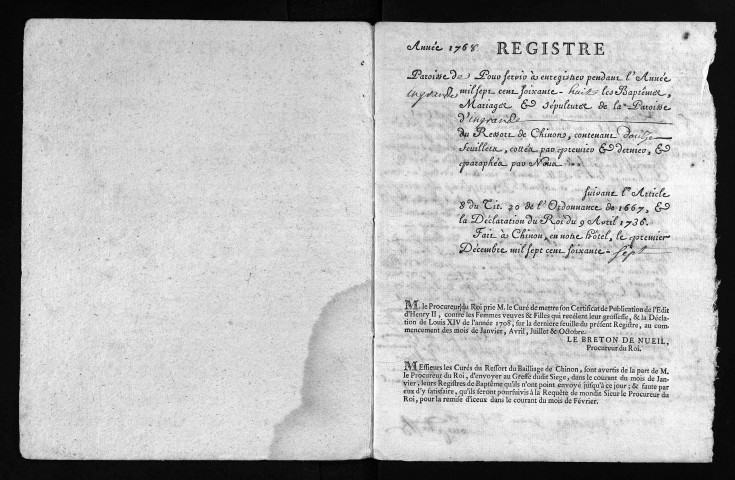 Année 1768 REGISTRE
Paroisse de Pour servir à enregistrer pendant l'Année
ingrande mil sept cent soixante-huit les Baptêmes,
Mariages & Sépultures de la Paroisse
d'ingrande
du Ressort de Chinon, contenant douze
feuillets, cottés par premier & dernier, &
paraphés par Nous
suivant l'Article
8 du Tit. 20 de l'Ordonnance de 1667, &
la Déclaration du Roi du 9 Avril 1736.
Fait à Chinon, en notre hôtel, le premier
Décembre mil sept cent soixante-sept
M. le Procureur du Roi prie M. le Curé de mettre son Certificat de Publication de l'Edit
d'Henry II, contre les Femmes veuves & Filles qui recélent leur grossesse, & la Décla-
ration de Louis XIV de l'année 1708, sur la derniere feuille du présent Registre, au com-
mencement des mois de Janvier, Avril, Juillet & Octobre.
LE BRETON DE NUEIL,
Procureur du Roi.
Messieurs les Curés du Ressort du Bailliage de Chinon, sont avertis de la part de M.
le Procureur du Roi, d'envoyer au Greffe dudit Siege, dans le courant du mois de Jan-
vier, leurs Registres de Baptême qu'ils n'ont point envoyé jusqu'à ce jour; & faute par
eux d'y satisfaire, qu'ils seront poursuivis à la Requête de mondit Sieur le Procureur du
Roi, pour la remise d'iceux dans le courant du mois de Février.